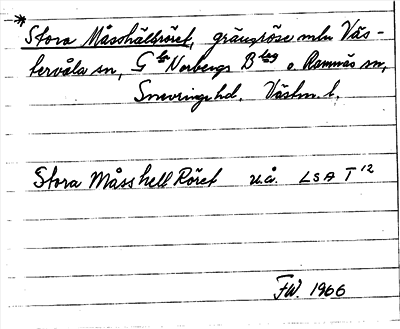 * Stora Måsshällsröret, gränsröse mln Väs-
tervåla sn, G la Norbergs Blag o. Ramnäs sn,
Snevringe hd. Västm. l.
Stora Måsshell Röret u.å. LSA T 12
FW. 1966